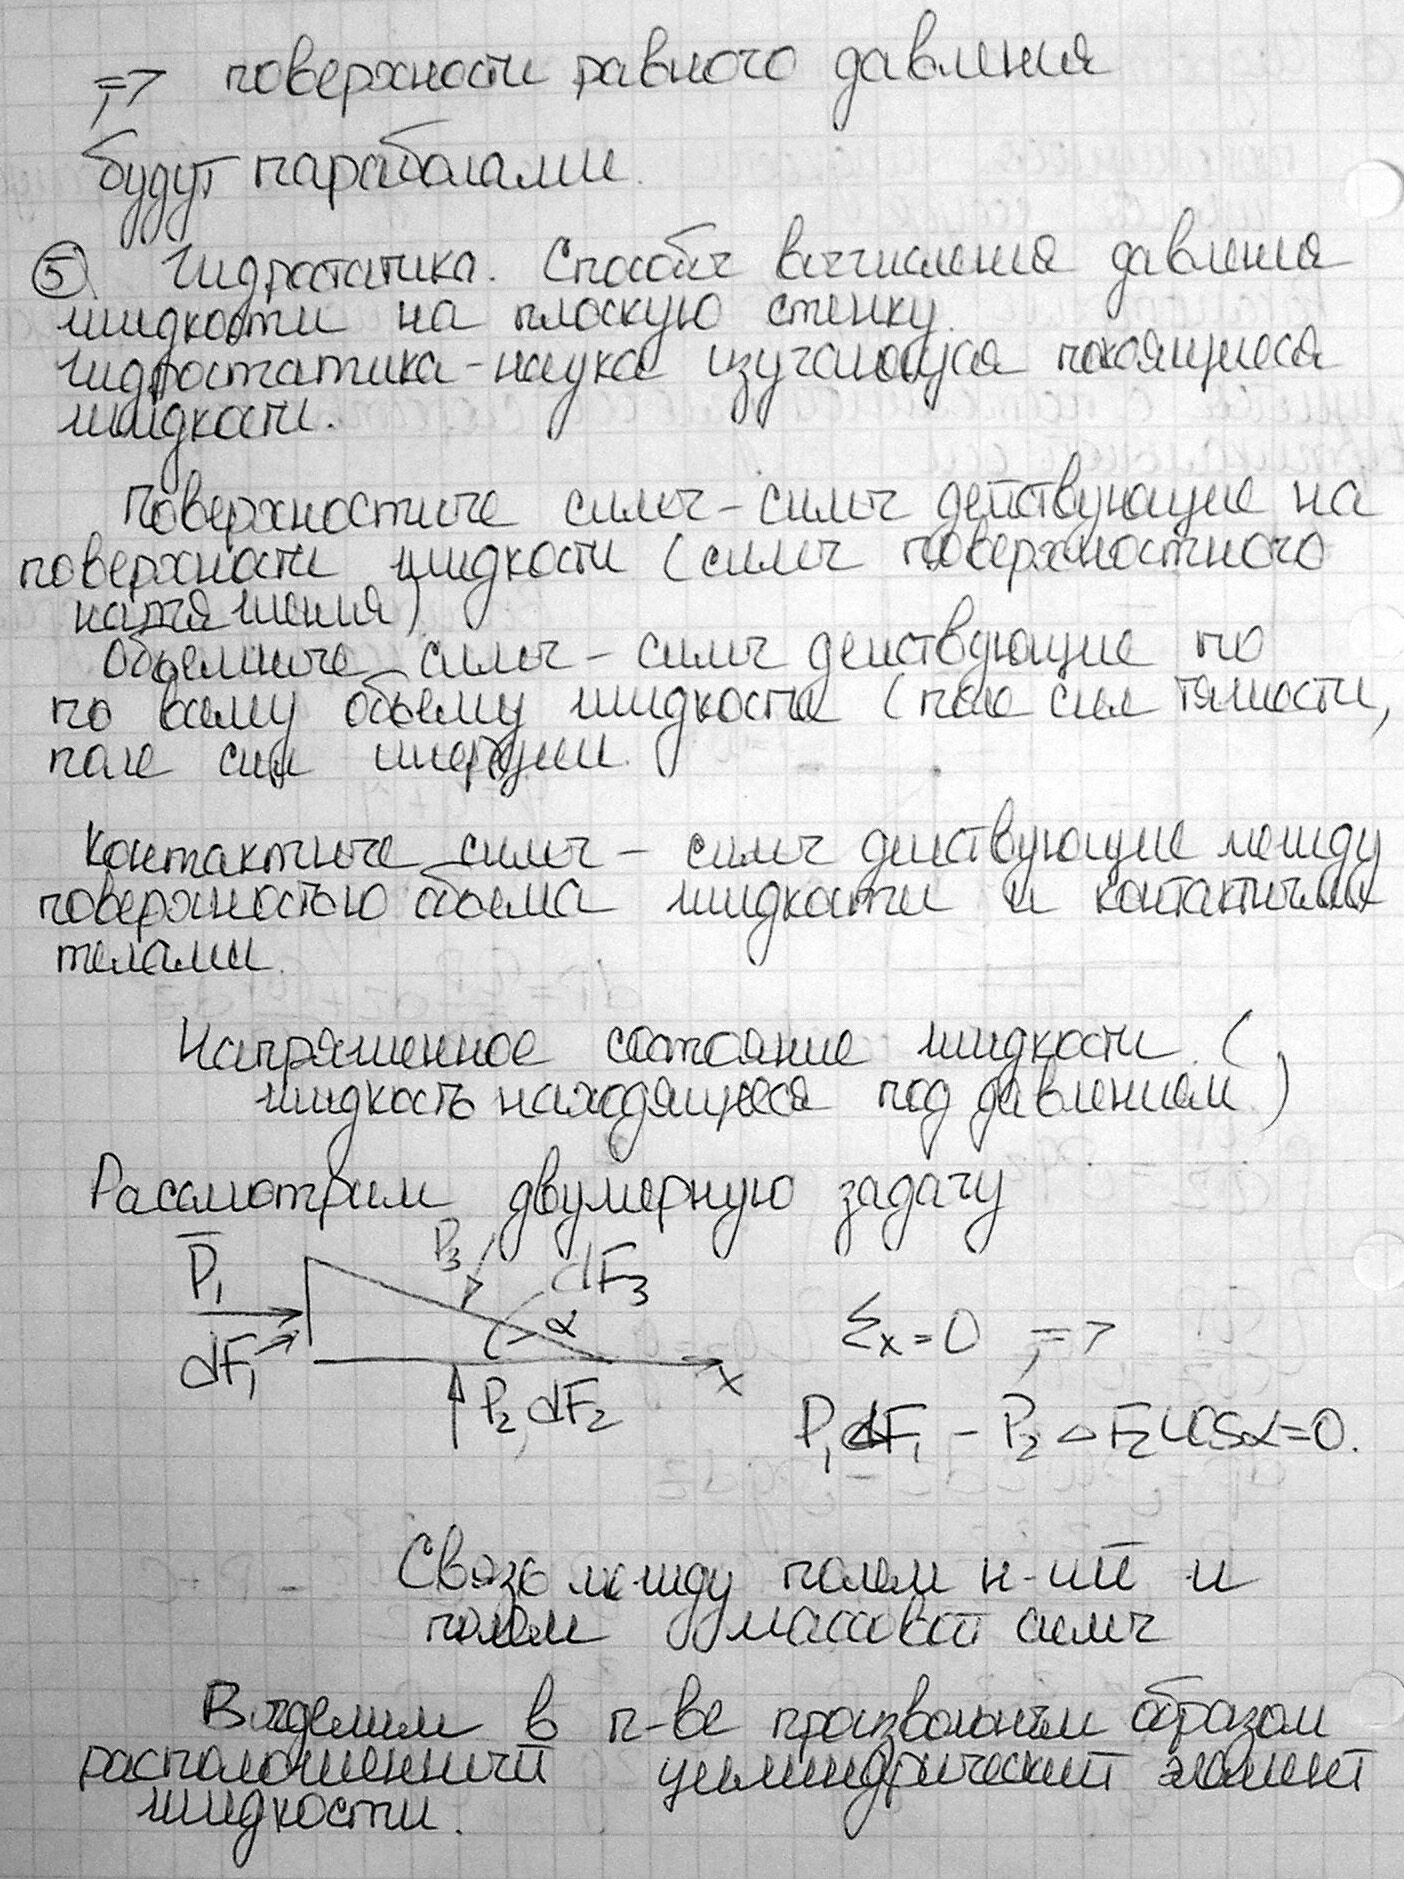 => поверхности равного давления
будут параболами.
5. Гидростатика. Способы вычисления давления
жидкости на плоскую стенку.
Гидростатика - наука изучающуся покоящиеся
жидкости.
Поверхностные силы - силы действующие на
поверхности жидкости (силы поверхностного
натяжения)
Объемные силы - силы действующие по
по всему объему жидкости (поле сил тяжести,
поле сил инерции.
Контактные силы - силы действующие между
поверхностью объема жидкости и контактными
телами.
Напряженное состояние жидкости. (
жидкость находящееся под давлением.)
Рассмотрим двумерную задачу
P₁
dF₁
P₃
dF₃
α
x
P₂, dF₂
Σx=0 =>
P₁dF₁ - P₂ΔF₂cosα=0.
Связь между полем н-ий и
полем массовой силы
Выделим в п-ве произвольным образом
расположенный цилиндрический элемент
жидкости.